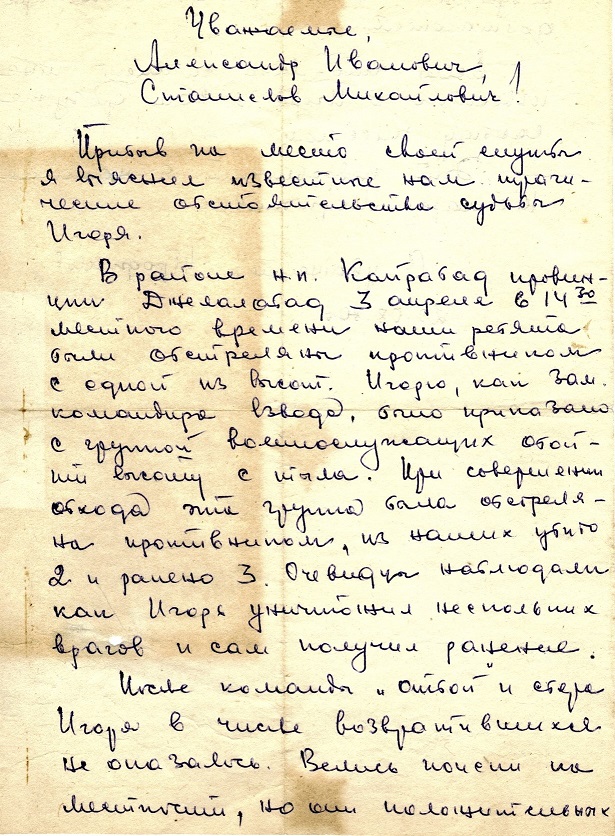 Уважаемые,
Александр Иванович,
Станислав Михайлович!
Прибыв на место своей службы
я выяснил известные нам траги-
ческие обстоятельства судьбы
Игоря.
В районе н.п. Кайрабад провин-
ции Джелалабад 3 апреля в 14 30
местного времени наши ребята
были обстреляны противником
с одной из высот. Игорю, как зам.
командира взвода, было приказано
с группой военнослужащих обой-
ти высоту с тыла. При совершении
отхода эта группа была обстреля-
на противником, из наших убито
2 и ранено 3. Очевидцы наблюдали
как Игорь уничтожил нескольких
врагов и сам получил ранение.
После команды "отбой" и сбора
Игоря в числе возвратившихся
не оказалось. Велись поиски на
местности, но они положительных